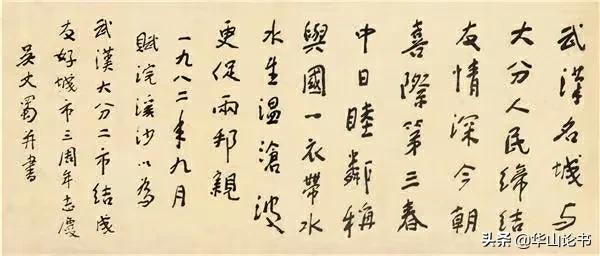 武漢名城与
大分人民締结
友情深今朝
喜際第三春
中日睦鄰稱
與國一衣帶水
水生温滄波
更促兩邦親
一九八二年九月
賦浣溪沙以為
武漢大分二市结成
友好城市三周年志慶
吴丈蜀并書
头条 @华山论书